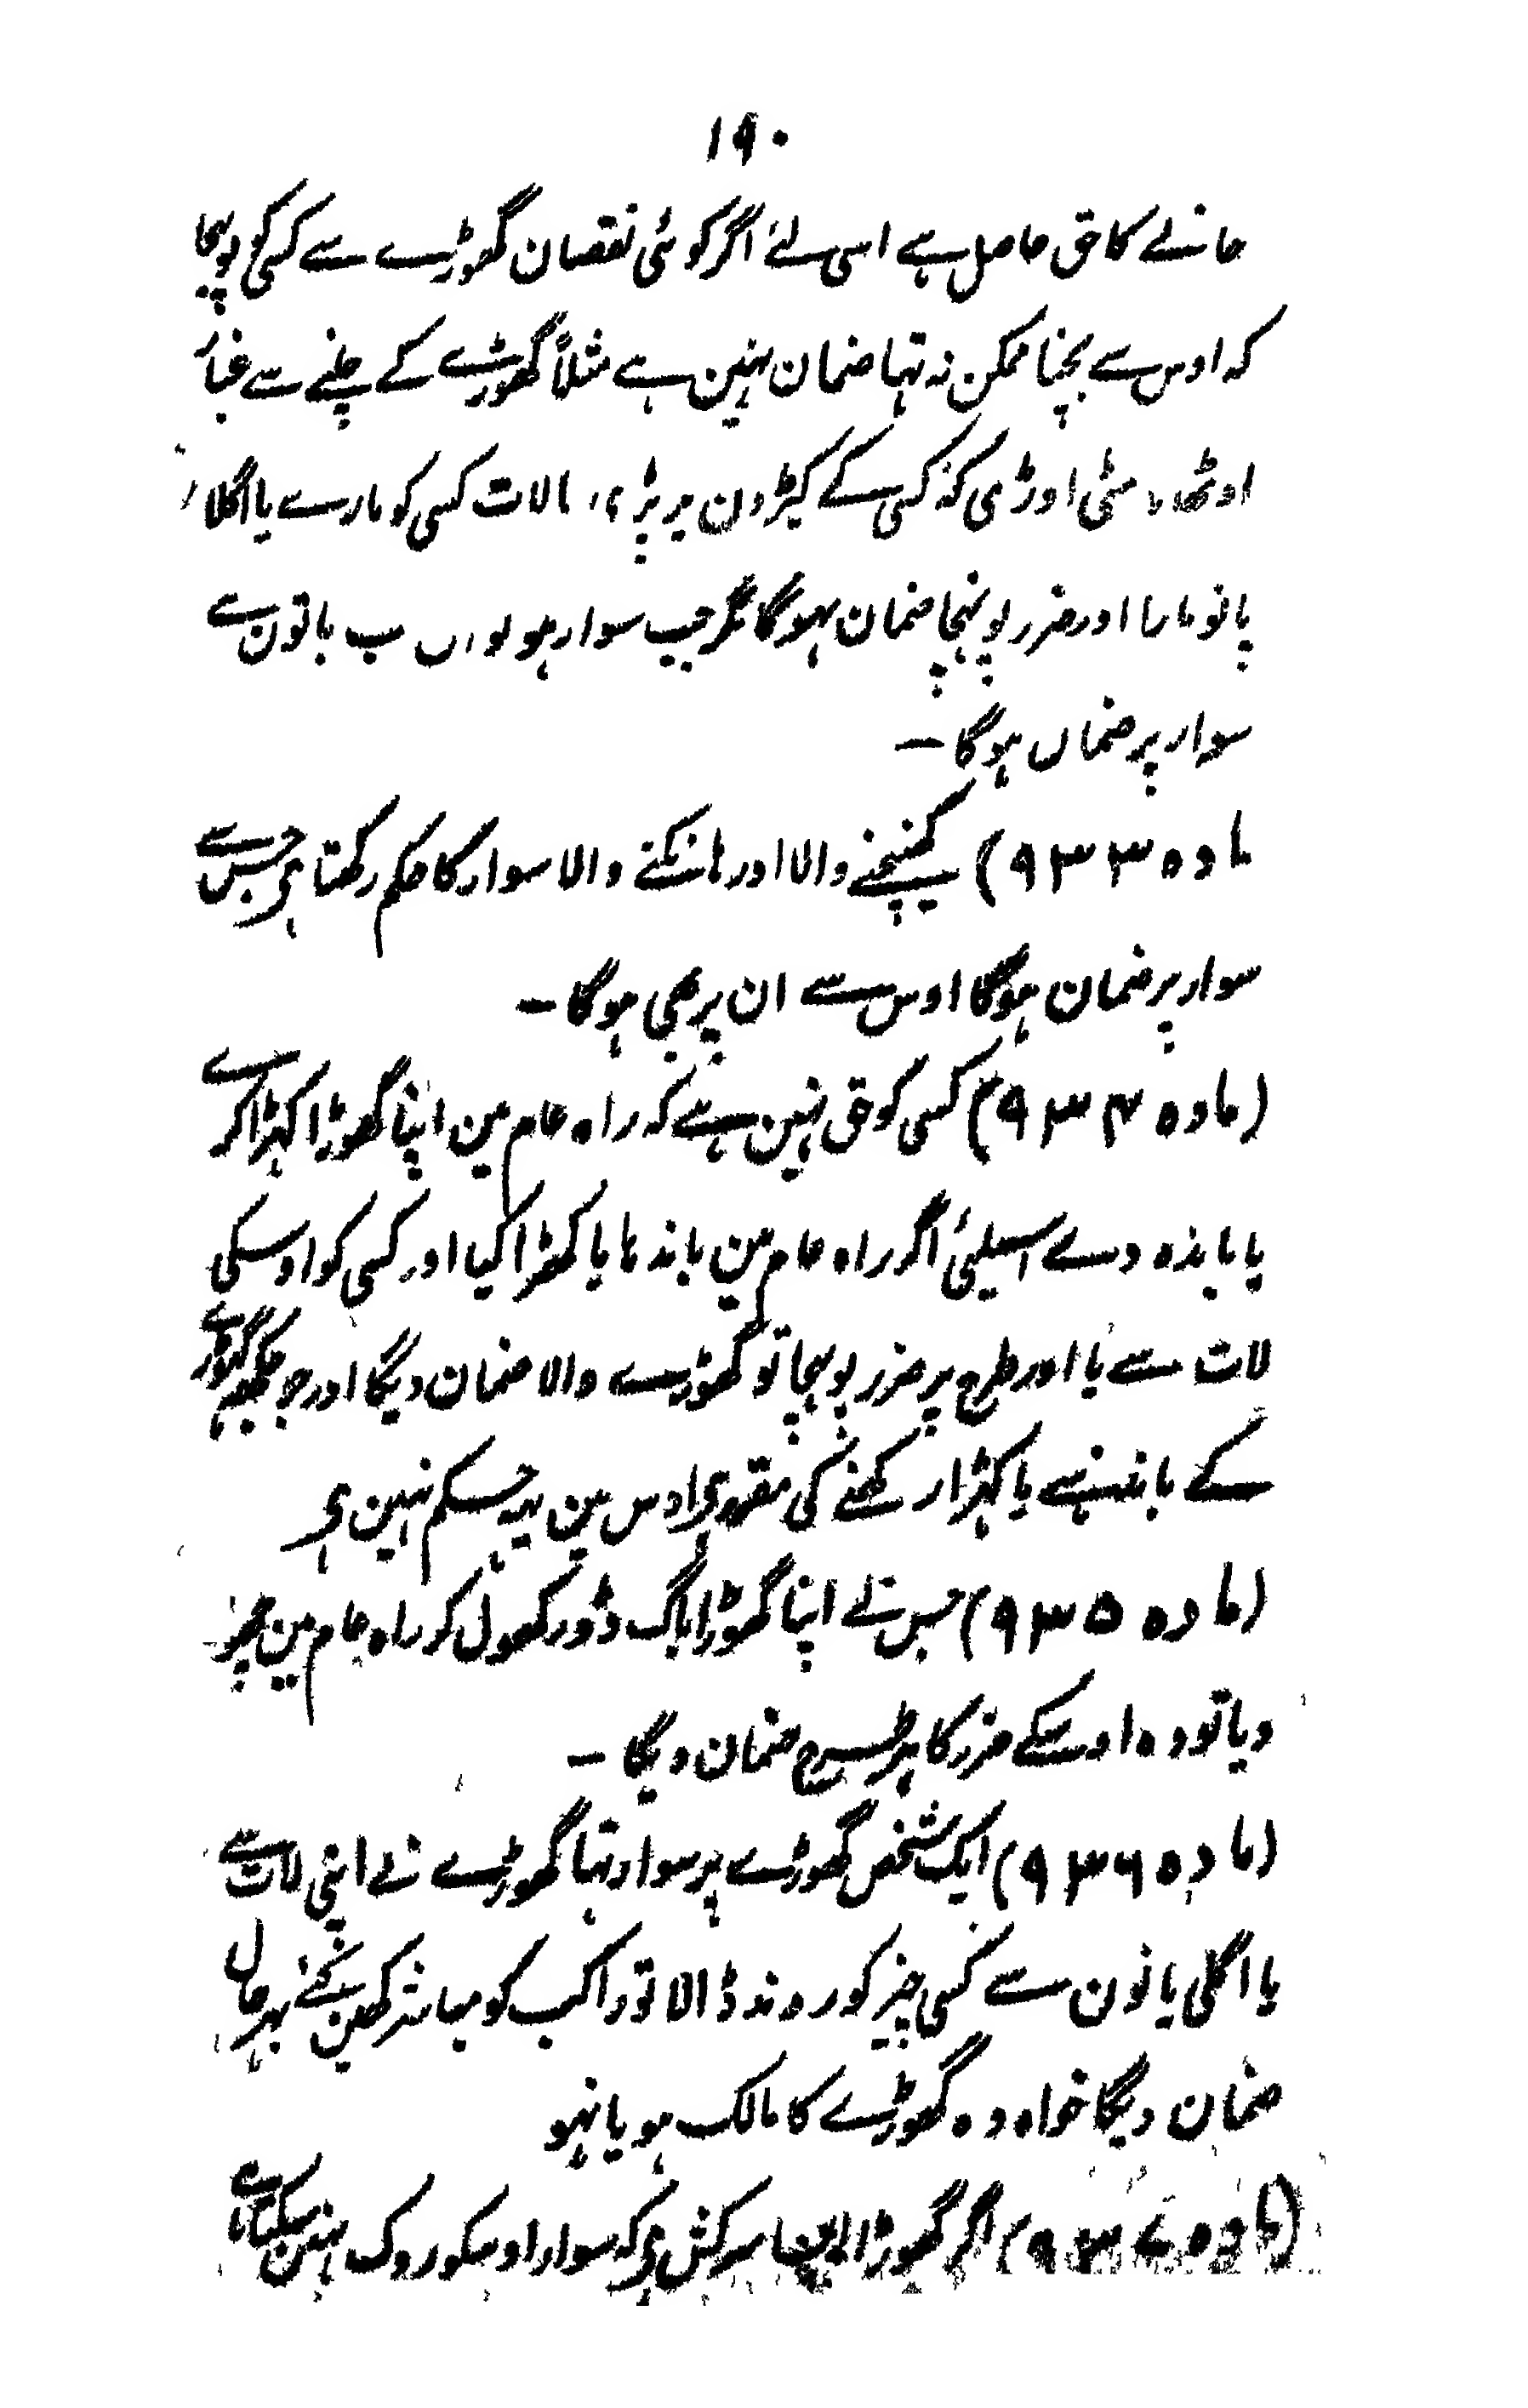 ١٩٠
جانے کا حق حاصل ہے اسی لئے اگر کوئی نقصان گھوڑیسے سے کسی کو پہنچا
کہ اوس سے بچنا ممکن نہ تہا ضمان نہین ہے مثلاً گھوڑے کے چلنے سے غبار
اوٹھا مٹی اوڑی کہ کسی کے کپڑون پر پڑی لات کسی کو مارے یا اگلا
پانو مارا اور ضرر پونہچا ضمان نہوگا مگر جب سوار ہو تو ان سب باتون سے
سوار پر ضمان ہوگا —
مادہ ٩٣٣) کھینچنے والا اور ہانکنے والا سوار کا حکم رکھتا ہی جس سے
سوار پر ضمان ہوگا اوس سے ان پر بھی ہوگا —
(مادہ ٩٣٤) کسی کو حق نہین ہے کہ راہ عام مین اپنا گھوڑا کہڑا کرے
یا باندہ دے اسیلئے اگر راہ عام مین باندہا یا کھڑا کیا اور کسی کو اوسکی
لات سے یا اور طرح پر ضرر پونہچا تو گھوڑے والا ضمان دیگا اور جو جگہہ گھوڑے
کے باندہنے یا کہڑا رکھنے کی مقرر ہی اوس مین یہ حکم نہین ہی
(مادہ ٩٣٥) جس نے اپنا گھوڑا باگ ڈور کھول کر راہ عام مین چھوڑ
دیا تو وہ اوسکے ضرر کا ہر طرح ضمان دیگا —
(مادہ ٩٣٦) ایک شخص گھوڑے پر سوار تہا گھوڑے نے اپنی لات سے
یا اگلی پانون سے کسی چیز کو روند ڈالا تو راکب کو مباشر کہین گے بہر حال
ضمان دیگا خواہ وہ گھوڑے کا مالک ہو یا نہو
(مادہ ٩٣٧) اگر گھوڑا ایسا سرکش ہی کہ سوار اوسکو روک نہین سکتا ہے